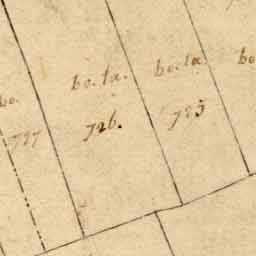 bo.
727
bo. la.
726.
bo. la
725
bo